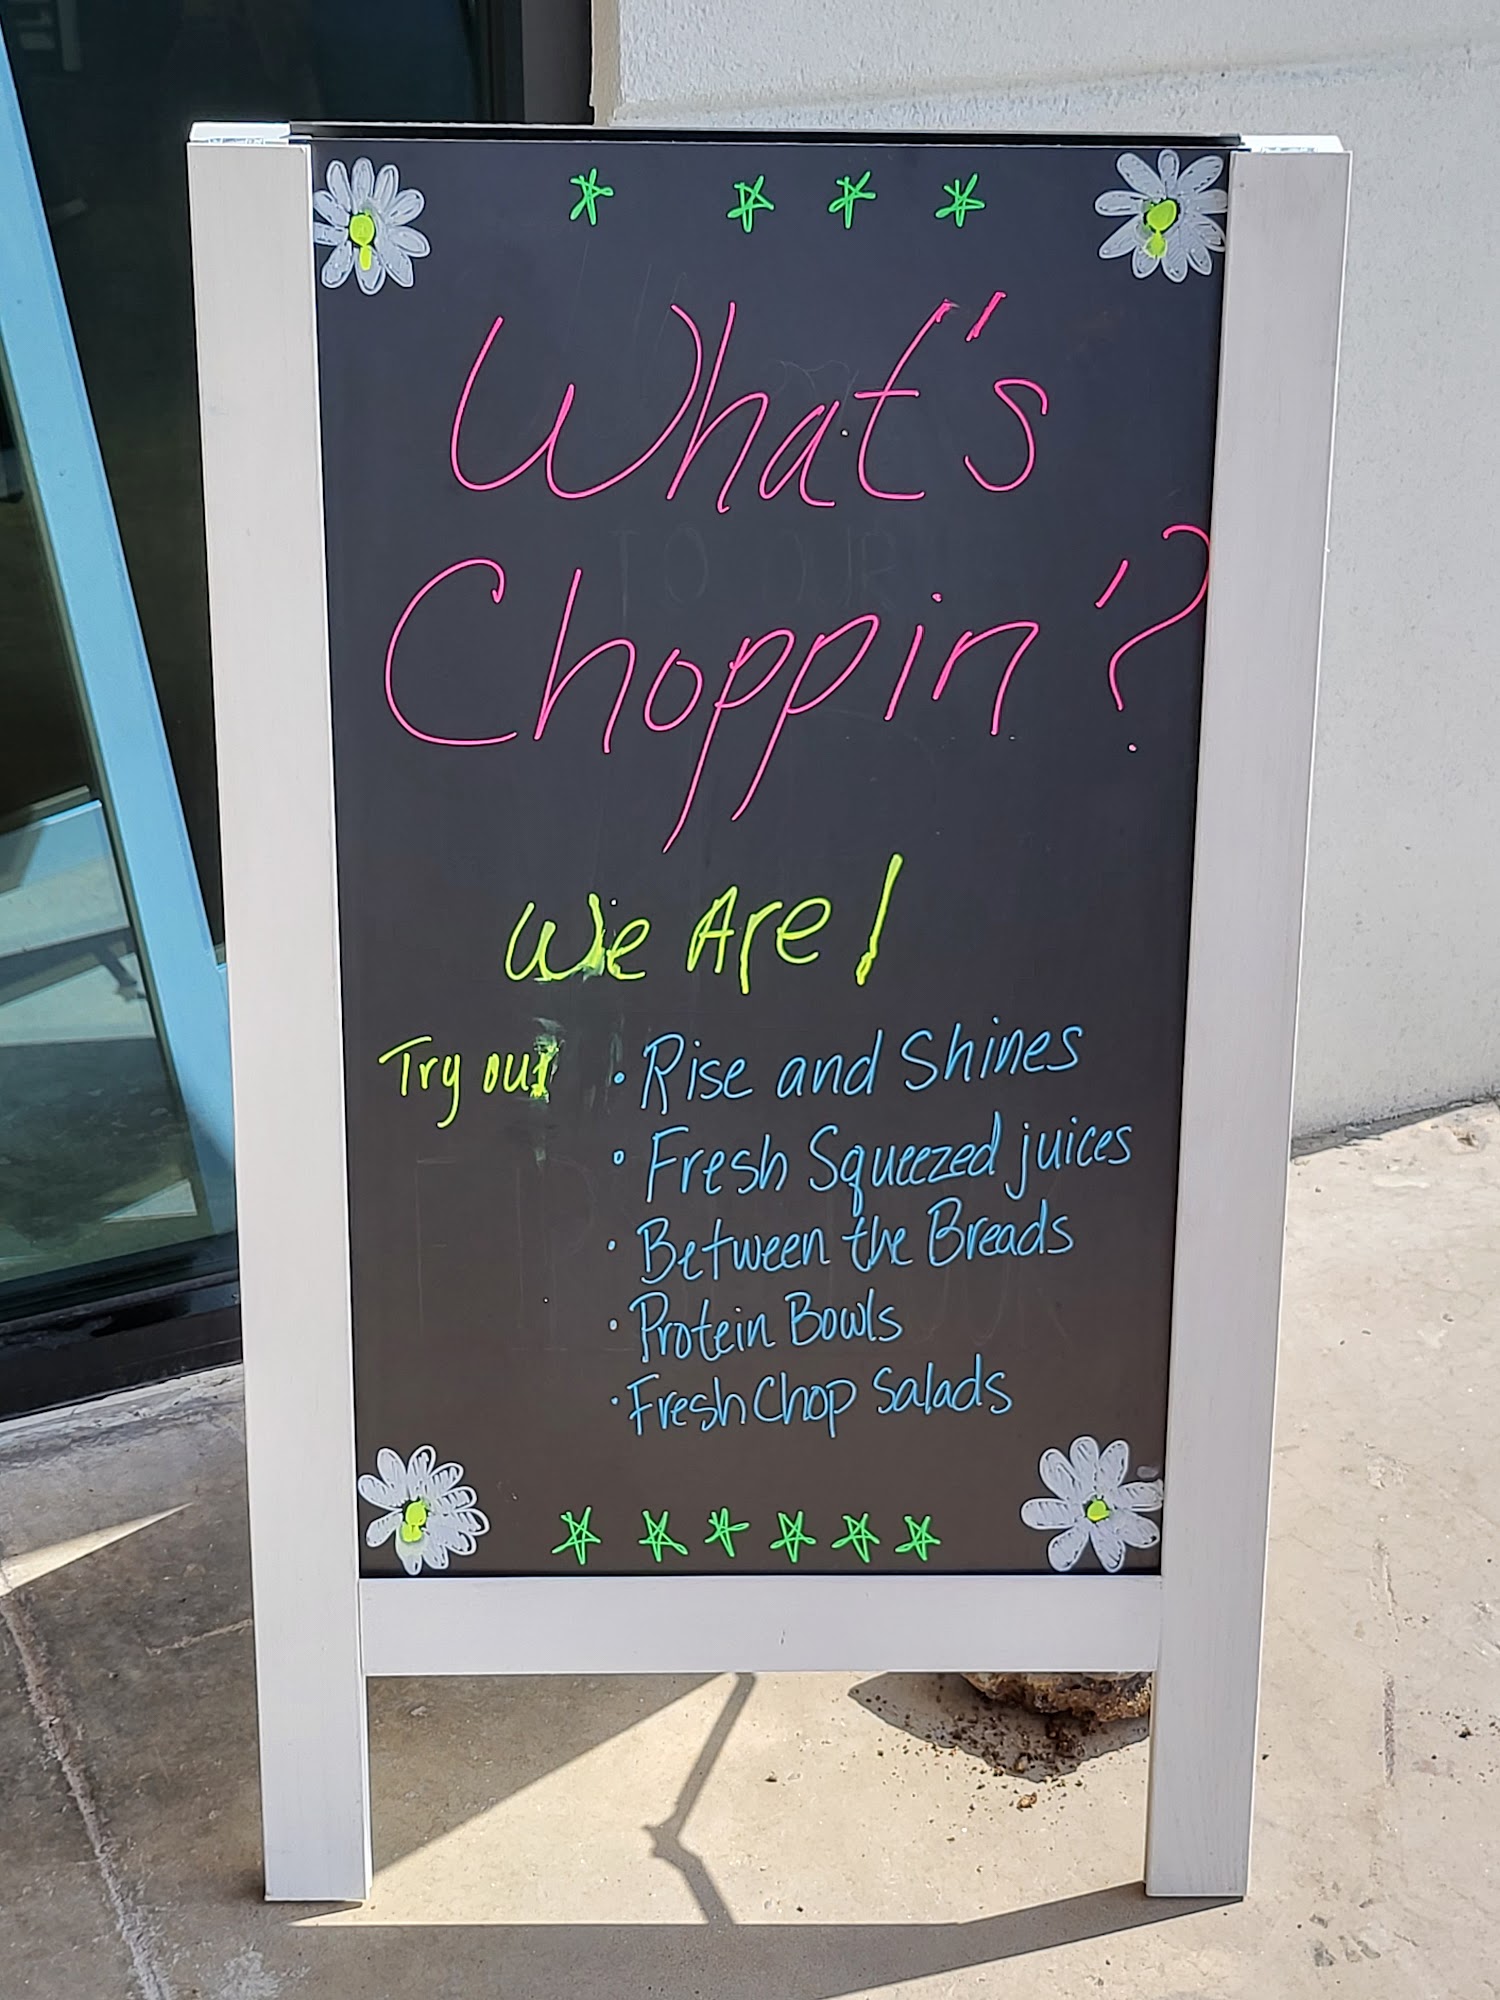 What's
Choppin'?
We Are!
Try our
• Rise and Shines
• Fresh Squeezed juices
• Between the Breads
• Protein Bowls
• Fresh Chop Salads
TO OUR